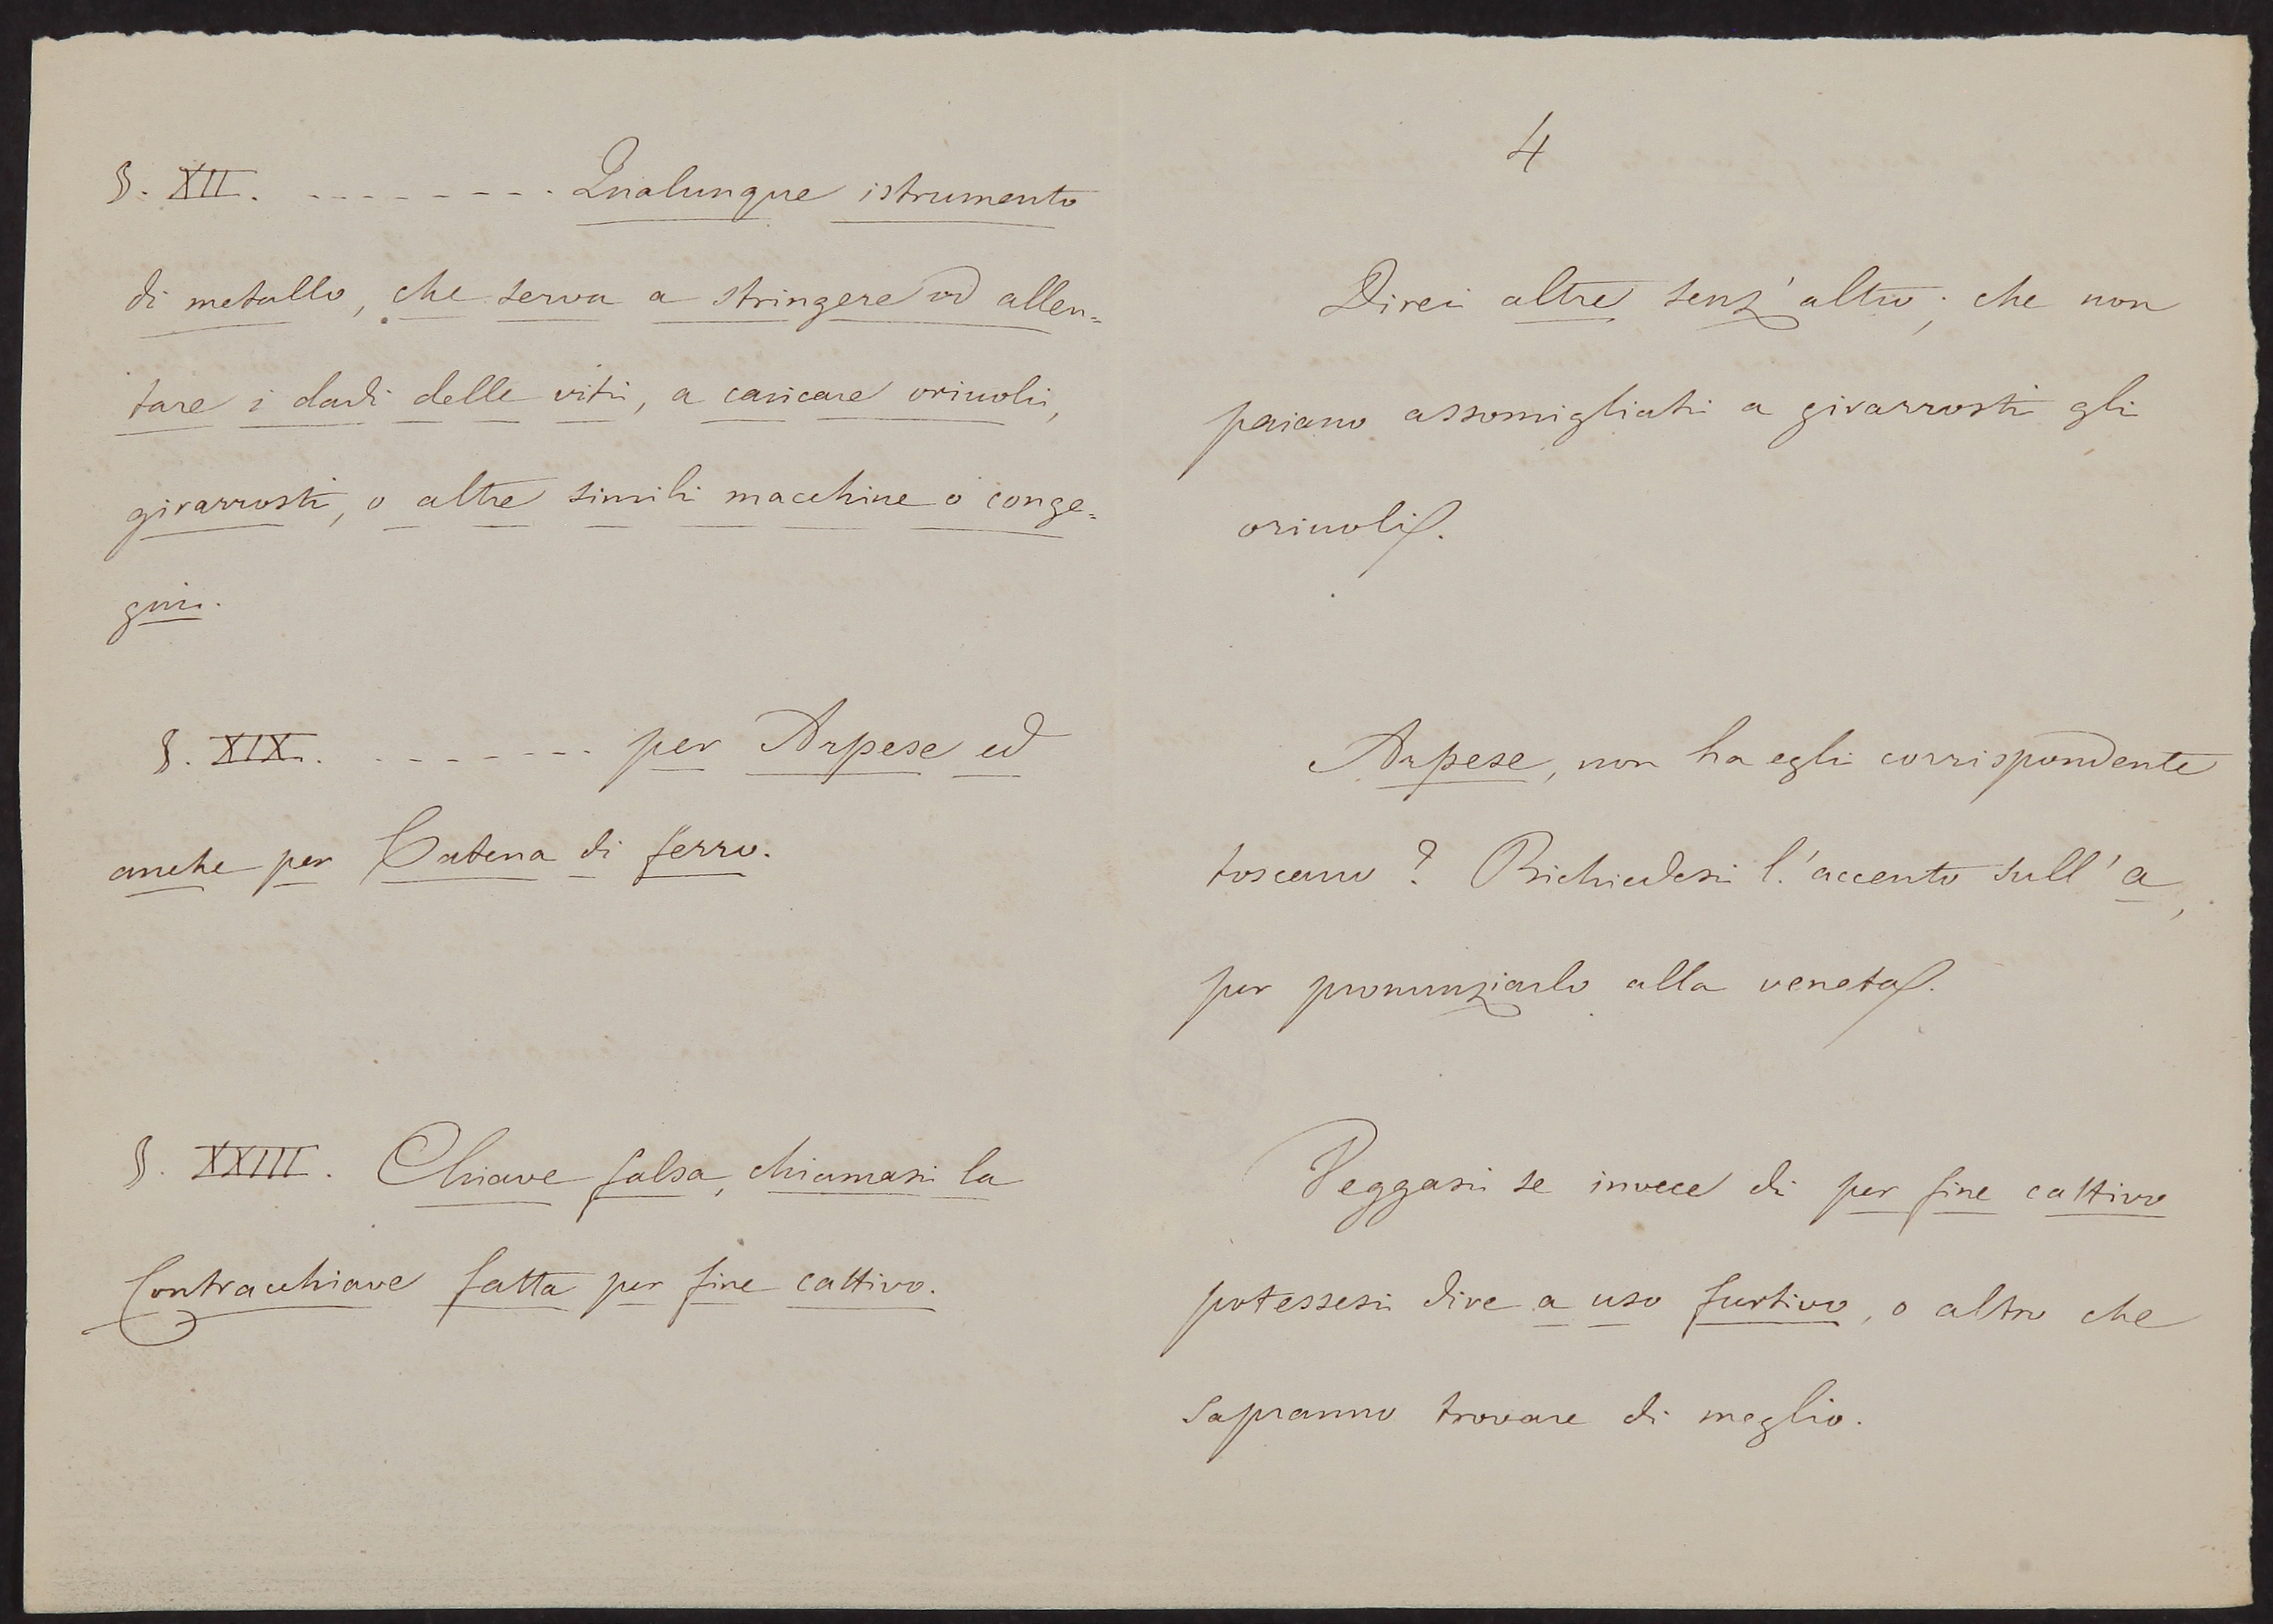 §. XII. - - - - - - - - Qualunque istrumento
di metallo, che serva a stringere od allen=
tare i dadi delle viti, a caricare oriuoli,
girarrosti, o altre simili macchine o conge=
gni.
§. XIX. - - - - - - - per Arpese ed
anche per Catena di ferro.
§. XXIII. Chiave falsa, chiamasi la
Contracchiave fatta per fine cattivo.
4
Direi altre senz'altro; che non
paiano assomigliati a girarrosti gli
oriuoli.
Arpese, non ha egli corrispondente
toscano? Richiedesi l'accento sull'a,
per pronunziarlo alla veneta.
Veggasi se invece di per fine cattivo
potessesi dire a uso furtivo, o altro che
sapranno trovare di meglio.